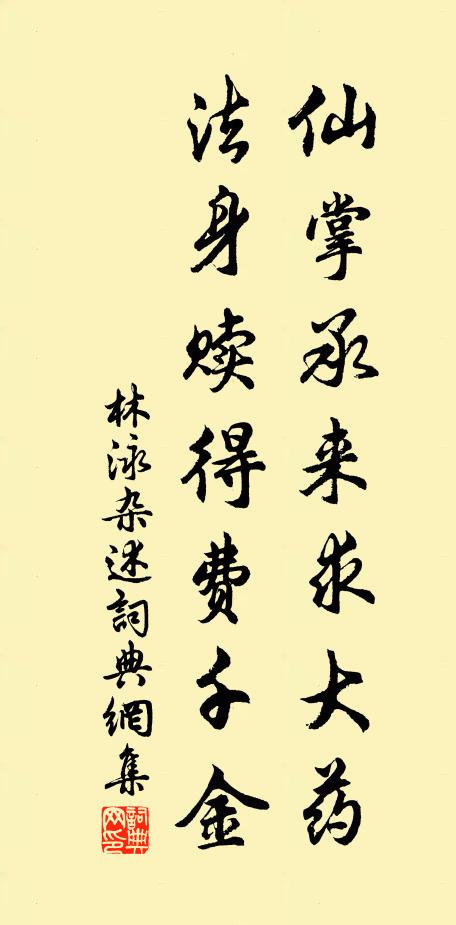 仙掌承来求大药
法身赎得费千金
林泳杂述詞典網集
詞典网印